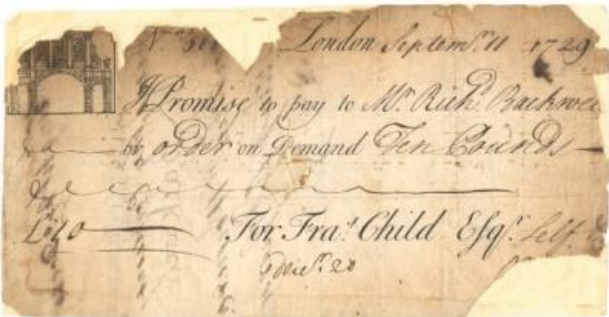 London Septem.r 11 1729
I Promise to pay to M.r Rich.d Backwel
or order on Demand Ten Pounds
£10
For Fra.s Child Esq.r Self